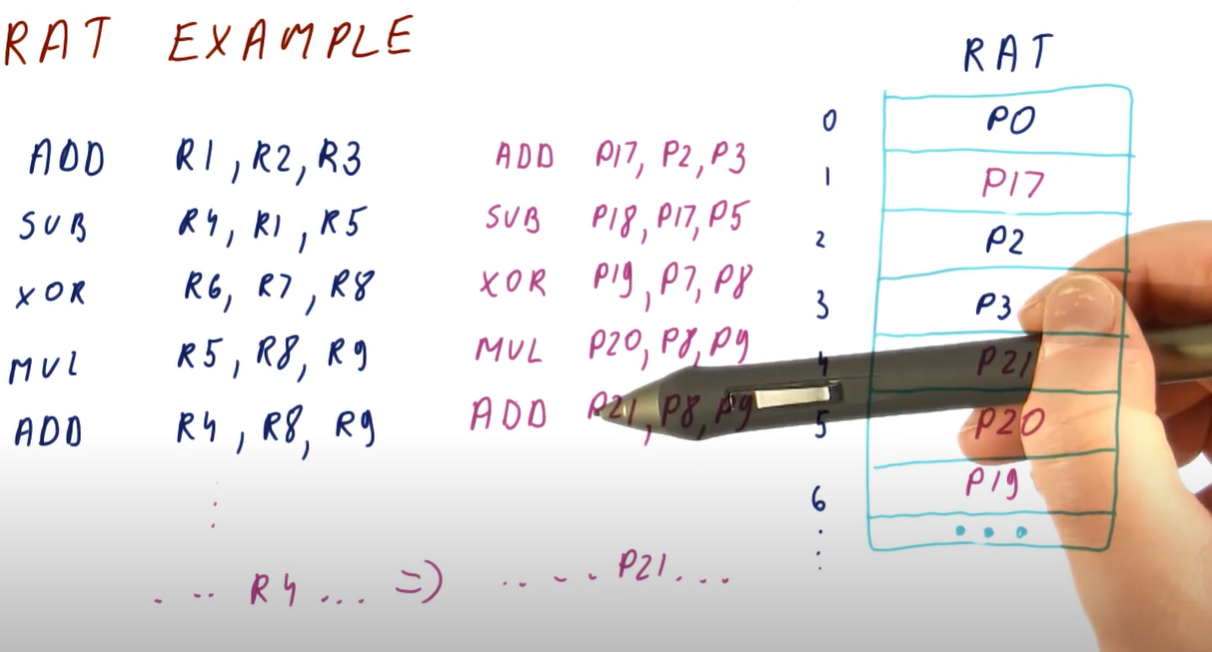 RAT EXAMPLE
ADD R1, R2, R3
SUB R4, R1, R5
XOR R6, R7, R8
MUL R5, R8, R9
ADD R4, R8, R9
⋮
... R4 ... => ..... P21...
ADD P17, P2, P3
SUB P18, P17, P5
XOR P19, P7, P8
MUL P20, P8, P9
ADD P21, P8, P9
RAT
0 P0
1 P17
2 P2
3 P3
4 P21
5 P20
6 P19
⋮ ...